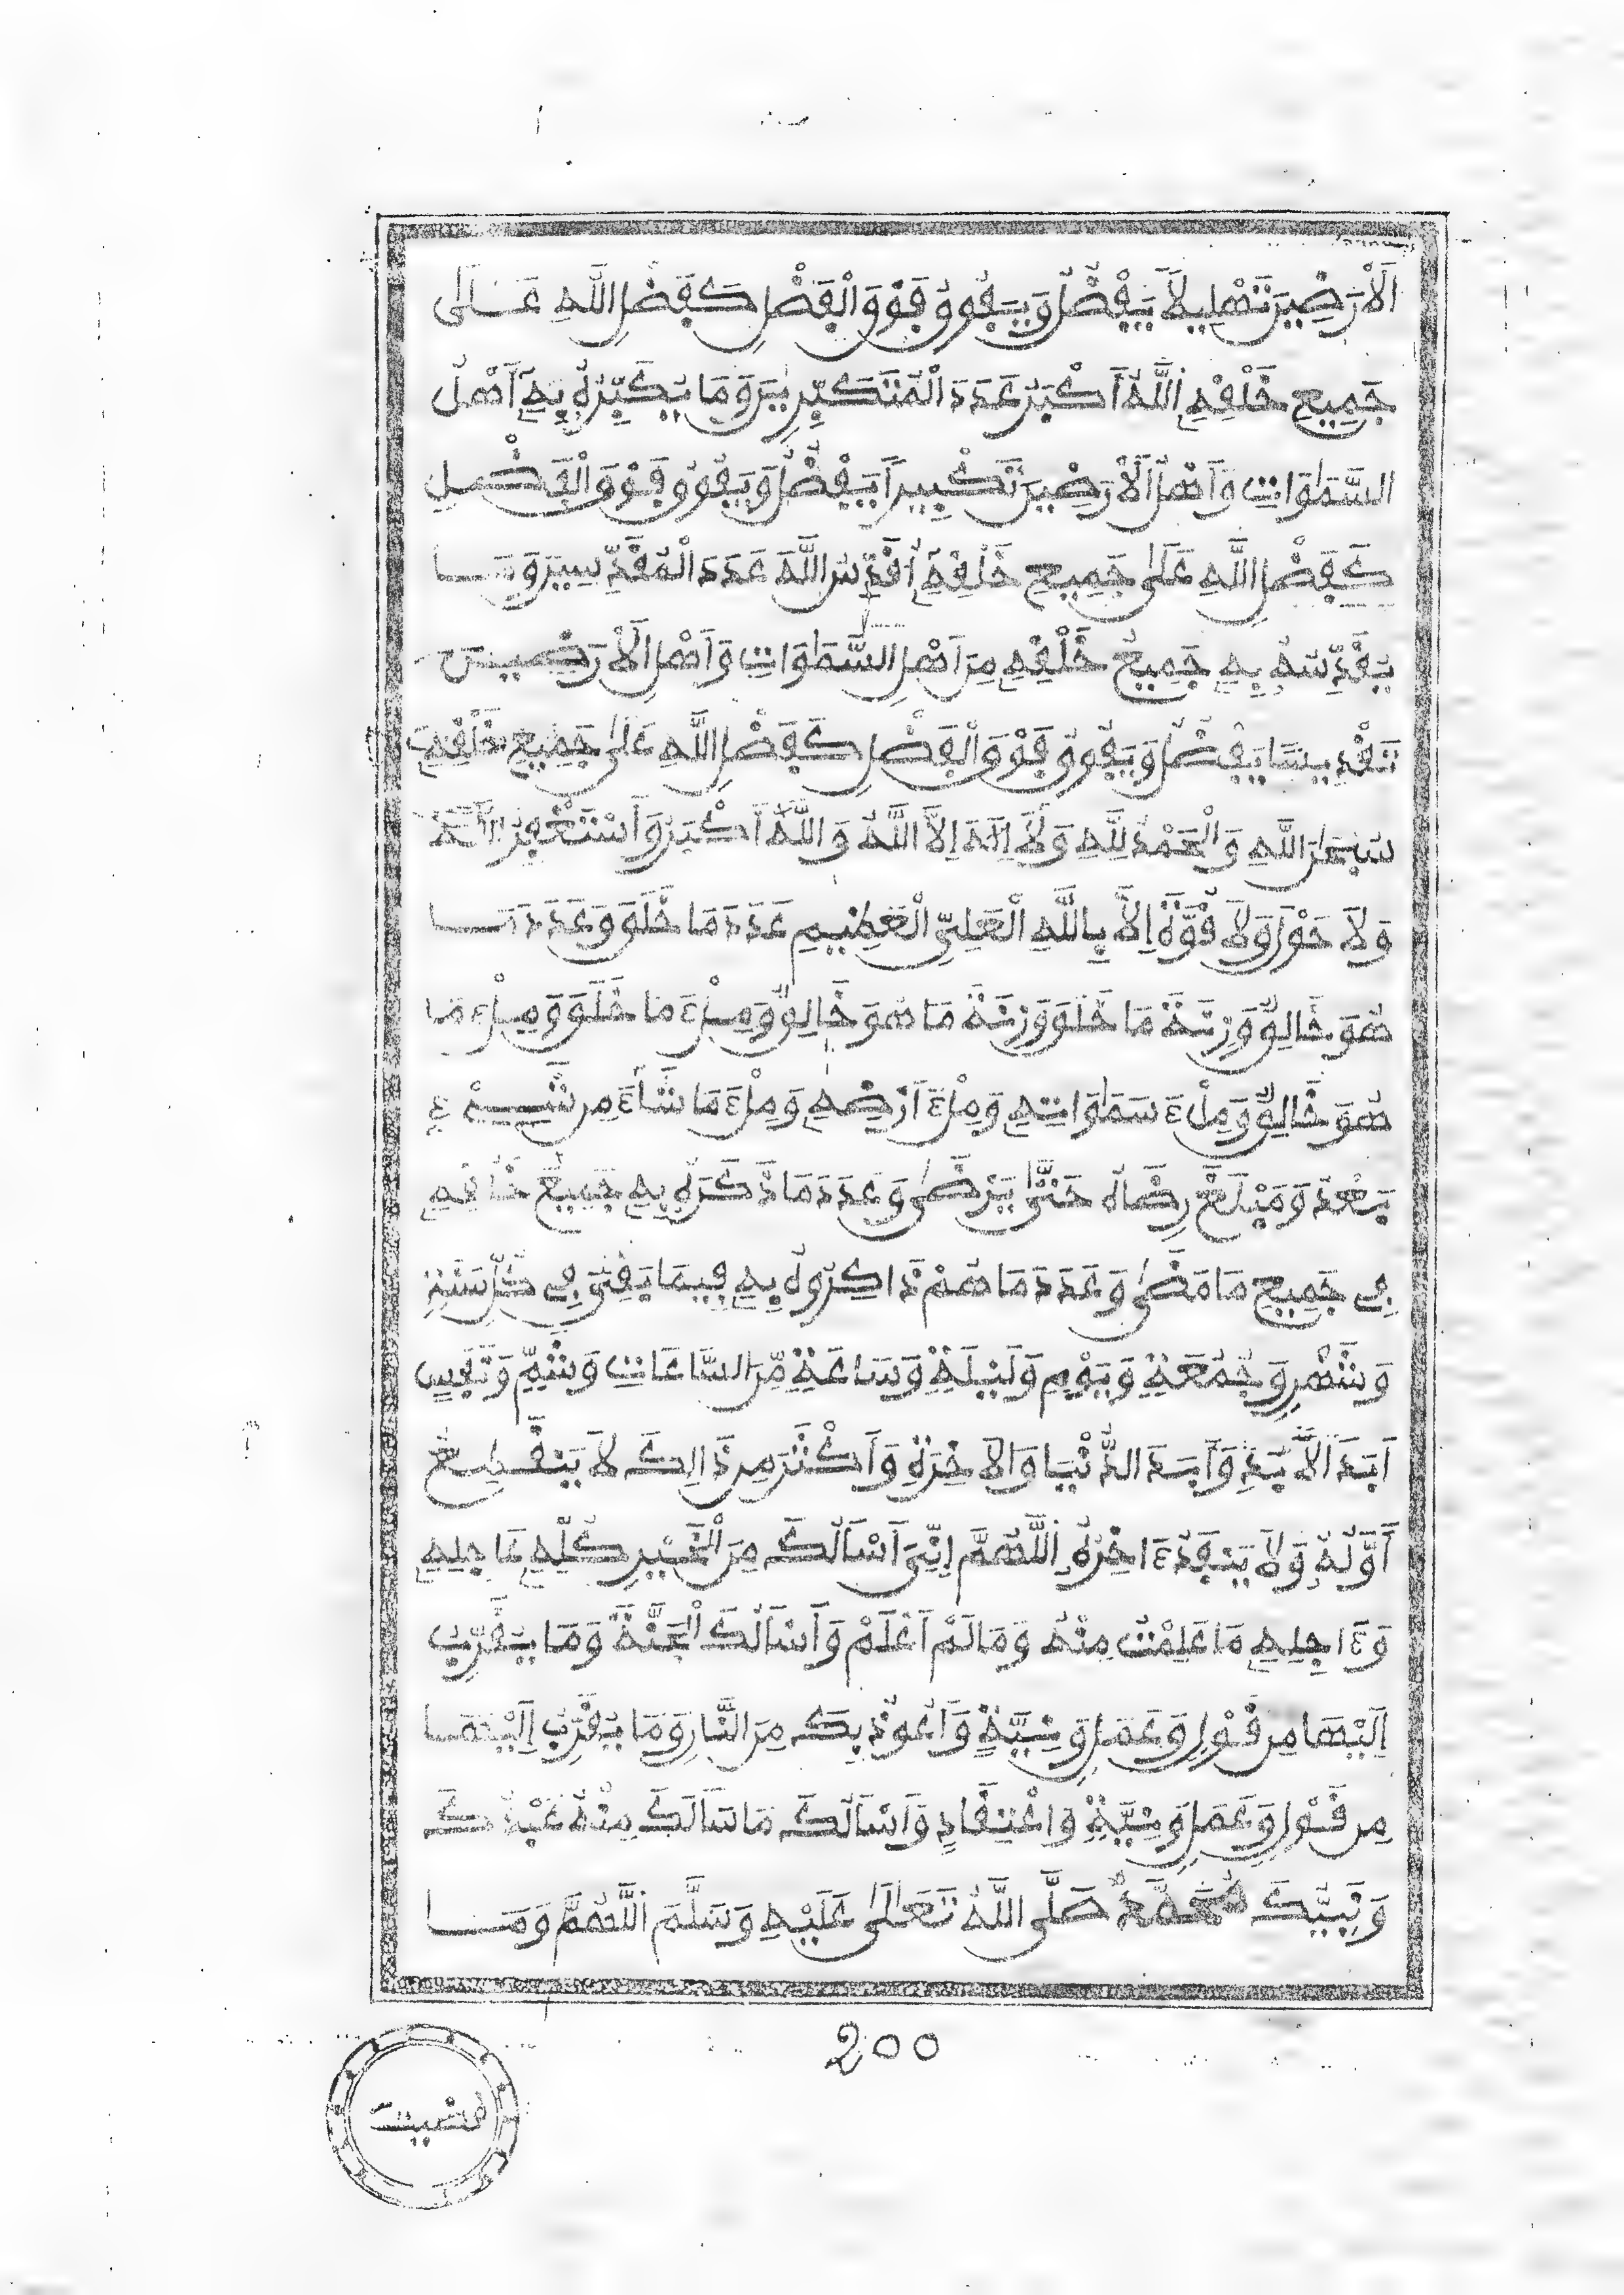 اَلَارَضِينَ تَهْلِيلاً يَفْضُلُ وَيَفُوقُ فَوْقَ الْفَضْلِ كَفَضْلِ اللَّهِ عَلَى
جَمِيعِ خَلْقِهِ اِللَّهُ أَكْبَرُ عَدَدَ الْمُتَكَبِّرِينَ وَمَا يُكَبِّرُهُ بِهِ أَهْلُ
السَّمَاوَاتِ وَأَهْلُ الَارَضِينَ تَكْبِيراً يَفْضُلُ وَيَفُوقُ فَوْقَ الْفَضْلِ
كَفَضْلِ اللَّهِ عَلَى جَمِيعِ خَلْقِهِ أُقَدِّسُ اللَّهَ عَدَدَ الْمُقَدِّسِينَ وَمَا
يُقَدِّسُهُ بِهِ جَمِيعُ خَلْقِهِ مِنَ اَهْلِ السَّمَاوَاتِ وَأَهْلِ الَارَضِينَ
تَقْدِيساً يَفْضُلُ وَيَفُوقُ فَوْقَ الْفَضْلِ كَفَضْلِ اللَّهِ عَلَى جَمِيعِ خَلْقِهِ
سُبْحَانَ اللَّهِ وَالْحَمْدُ لِلَّهِ وَلَا إِلَهَ إِلاَّ اللَّهُ وَاللَّهُ أَكْبَرُ وَأَسْتَغْفِرُ اللَّهَ
وَلَا حَوْلَ وَلَا قُوَّةَ إِلاَّ بِاللَّهِ الْعَلِيِّ الْعَظِيمِ عَدَدَ مَا خَلَقَ وَعَدَدَ مَا
هُوَ خَالِقٌ وَزِنَةَ مَا خَلَقَ وَزِنَةَ مَا هُوَ خَالِقٌ وَمِلْءَ مَا خَلَقَ وَمِلْءَ مَا
هُوَ خَالِقٌ وَمِلْءَ سَمَاوَاتِهِ وَمِلْءَ اَرْضِهِ وَمِلْءَ مَا شَاءَ مِن شَيْءٍ
بَعْدُ وَمَبْلَغَ رِضَاهُ حَتَّى يَرْضَى وَعَدَدَ مَا ذَكَرَهُ بِهِ جَمِيعُ خَلْقِهِ
فِي جَمِيعِ مَا مَضَى وَعَدَدَ مَا هُمْ ذَاكِرُوهُ بِهِ فِيمَا بَقِيَ فِي كُلِّ سَنَةٍ
وَشَهْرٍ وَجُمُعَةٍ وَيَوْمٍ وَلَيْلَةٍ وَسَاعَةٍ مِّنَ السَّاعَاتِ وَشَمٍّ وَنَفَسٍ
أَبَدَ الَابَدِ وَأَبَدَ الدُّنْيَا وَالَاخِرَةِ وَأَكْثَرَ مِن ذَالِكَ لاَ يَنقَطِعُ
أَوَّلُهُ وَلَا يَنفَدُ ءَاخِرُهُ اِللَّهُمَّ إِنِّيَ أَسْأَلُكَ مِنَ الْخَيْرِ كُلِّهِ عَاجِلِهِ
وَءَاجِلِهِ مَا عَلِمْتُ مِنْهُ وَمَا لَمْ أَعْلَمْ وَأَسْأَلُكَ الْجَنَّةَ وَمَا يُقَرِّبُ
إِلَيْهَا مِن قَوْلٍ وَعَمَلٍ وَنِيَّةٍ وَأَعُوذُ بِكَ مِنَ النَّارِ وَمَا يُقَرِّبُ إِلَيْهَا
مِن قَوْلٍ وَعَمَلٍ وَنِيَّةٍ وَاعْتِقَادٍ وَأَسْأَلُكَ مَا سَأَلَكَ مِنْهُ عَبْدُكَ
وَنَبِيُّكَ مُحَمَّدٌ صَلَّى اللَّهُ تَعَالَى عَلَيْهِ وَسَلَّمَ اللَّهُمَّ وَمَا
200